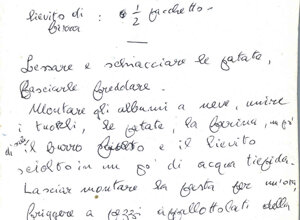 lievito di : ½ pacchetto -
birra
Lessare e schiacciare le patate,
lasciarle freddare.
Montare gli albumi a neve, unire
i tuorli, le patate, la farina, un po'
di sale il burro fuso e il lievito
sciolto in un po' di acqua tiepida.
Lasciar montare la pasta per un'ora
Friggere a pezzi appallottolati della